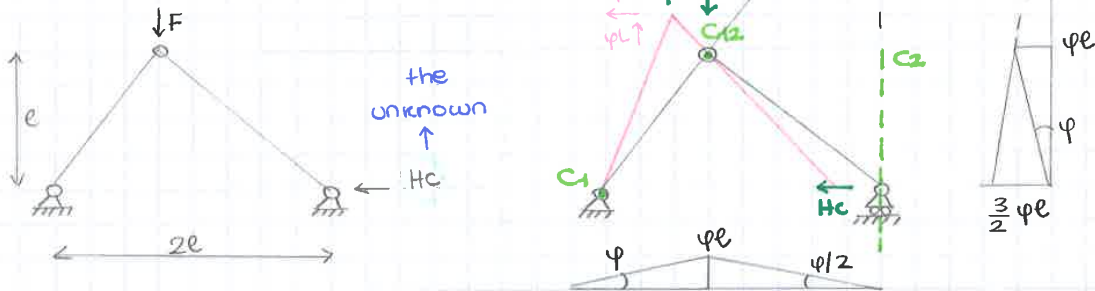 F
the
unknown
HC
l
2l
φL
C12
C2
C1
HC
φ
φl
φ/2
φl
φ
3/2 φl